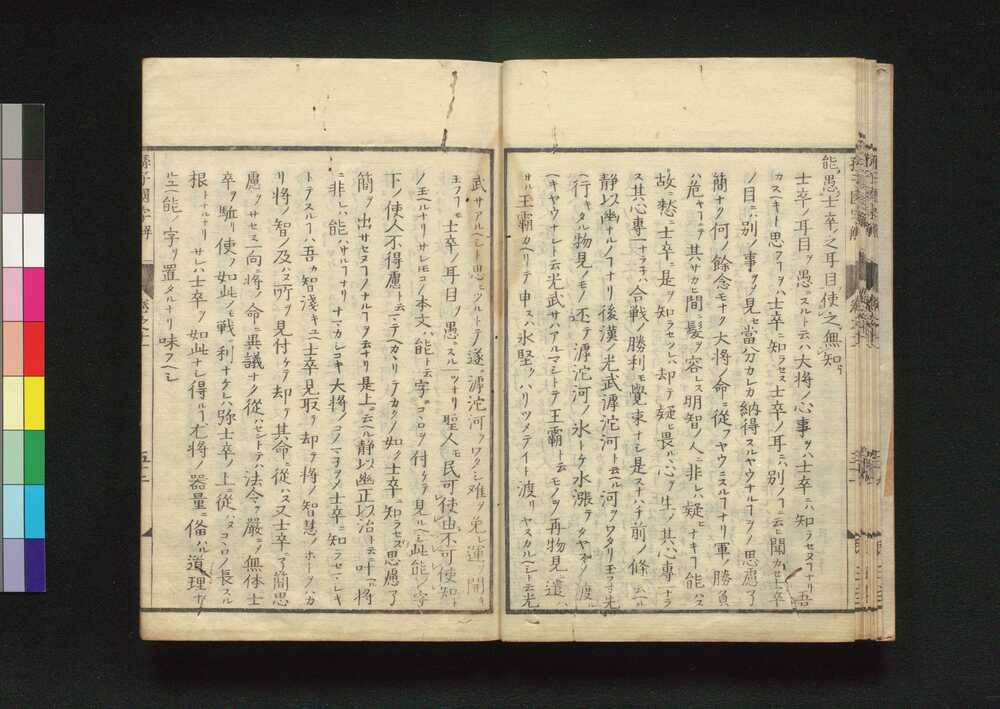 能愚士卒之耳目使之無知
士卒ノ耳目ヲ愚ニスルト云ハ大将ノ心事ヲハ士卒ニハ知ラセヌフナリ吾
カスヘキト思フフヲハ士卒ニ知ラセス士卒ノ耳ニハ別ノフヲ云ヒ聞カセ士卒
ノ目ニハ別ノ事ヲノ見セ當分カレカ納得スルヤウナルフヲノ思慮了
簡ナク何ノ餘念モナク大将ノ命ニ從フヤウニスルフナリ軍勝負
ノ危キフニテ其サカヒ間ニ髪ヲ容レス明智ノ人ニ非レハ疑ヒナキフ能ハス
故ニ愁ニ士卒ニ是ヲ知ラセツレハ却テ疑ヒ畏ルヽ心ヲ生ノ其心專一ナラ
ス其心專一ナラネハ合戰ノ勝利モ覺束ナシ是スナハチ前ノ條ニ云ル
静以幽ナルノフナリ後漢ノ光武滹沱河ト云ル河ヲワタリ玉フニ先
ヘ行キタル物見ノモノ還テ滹沱河ノ氷トケ水漲テナカ〳〵渡ル
ヘキヤウナシト云光武サハアルマシトテ王霸ト云モノヲ再物見ニ遣ハ
サル王霸カヘリテ申スハ氷堅クハリツメテイト渡リヤスカルヘシト云光
武サアルヘシト思ヒツルトテ遂ニ滹沱河ヲワタシ难ヲ免レ運ヲ開キ
玉フフモ士卒ノ耳目ヲ愚ニスル一ツナリ聖人モ民可使由不可使知ト
ノ玉ヘルナリサレモコノ本文ハ能ト云字ニコヽロヲ付ケテ見ルヘシ此能ノ字
下ノ使人不得慮ト云マテヘカヽリテカクノ如ク士卒ニ知ラセズ思慮了
簡ヲ出サセヌフノナルフヲ云ナリ是上ニ云ヘル静以幽正以治ト云ニ叶ヘル将
ニ非レハ能ハサルフナリナマカシコキ大将ノコノマヽヲノ士卒ニ知ラセマシキ
トテスルフハ吾カ智淺キユヘニ士卒見取リ却テ将ノ智慧ノホーケハカ
リ将ノ智ノ及ハヌ所ヲ見付ケテ却テ其命ニ從ハス又士卒ニ了簡思
慮ヲサセス一向ニ将ノ命ニ異議ナク從ハセントテハ法令ヲ嚴ニノ無体ニ士
卒ヲ駈リ使フ如此モノ戰ニ利ナケレハ弥士卒ノ上ニ從ハヌコヽロノ長スル
根トナルナリサレハ士卒ヲ如此ナレ得ルフ尤将ノ器量ニ俻ハル道理ナリ
ユヘニ能ノ字ヲ置タルナリ味フヘシ
孫子國字解